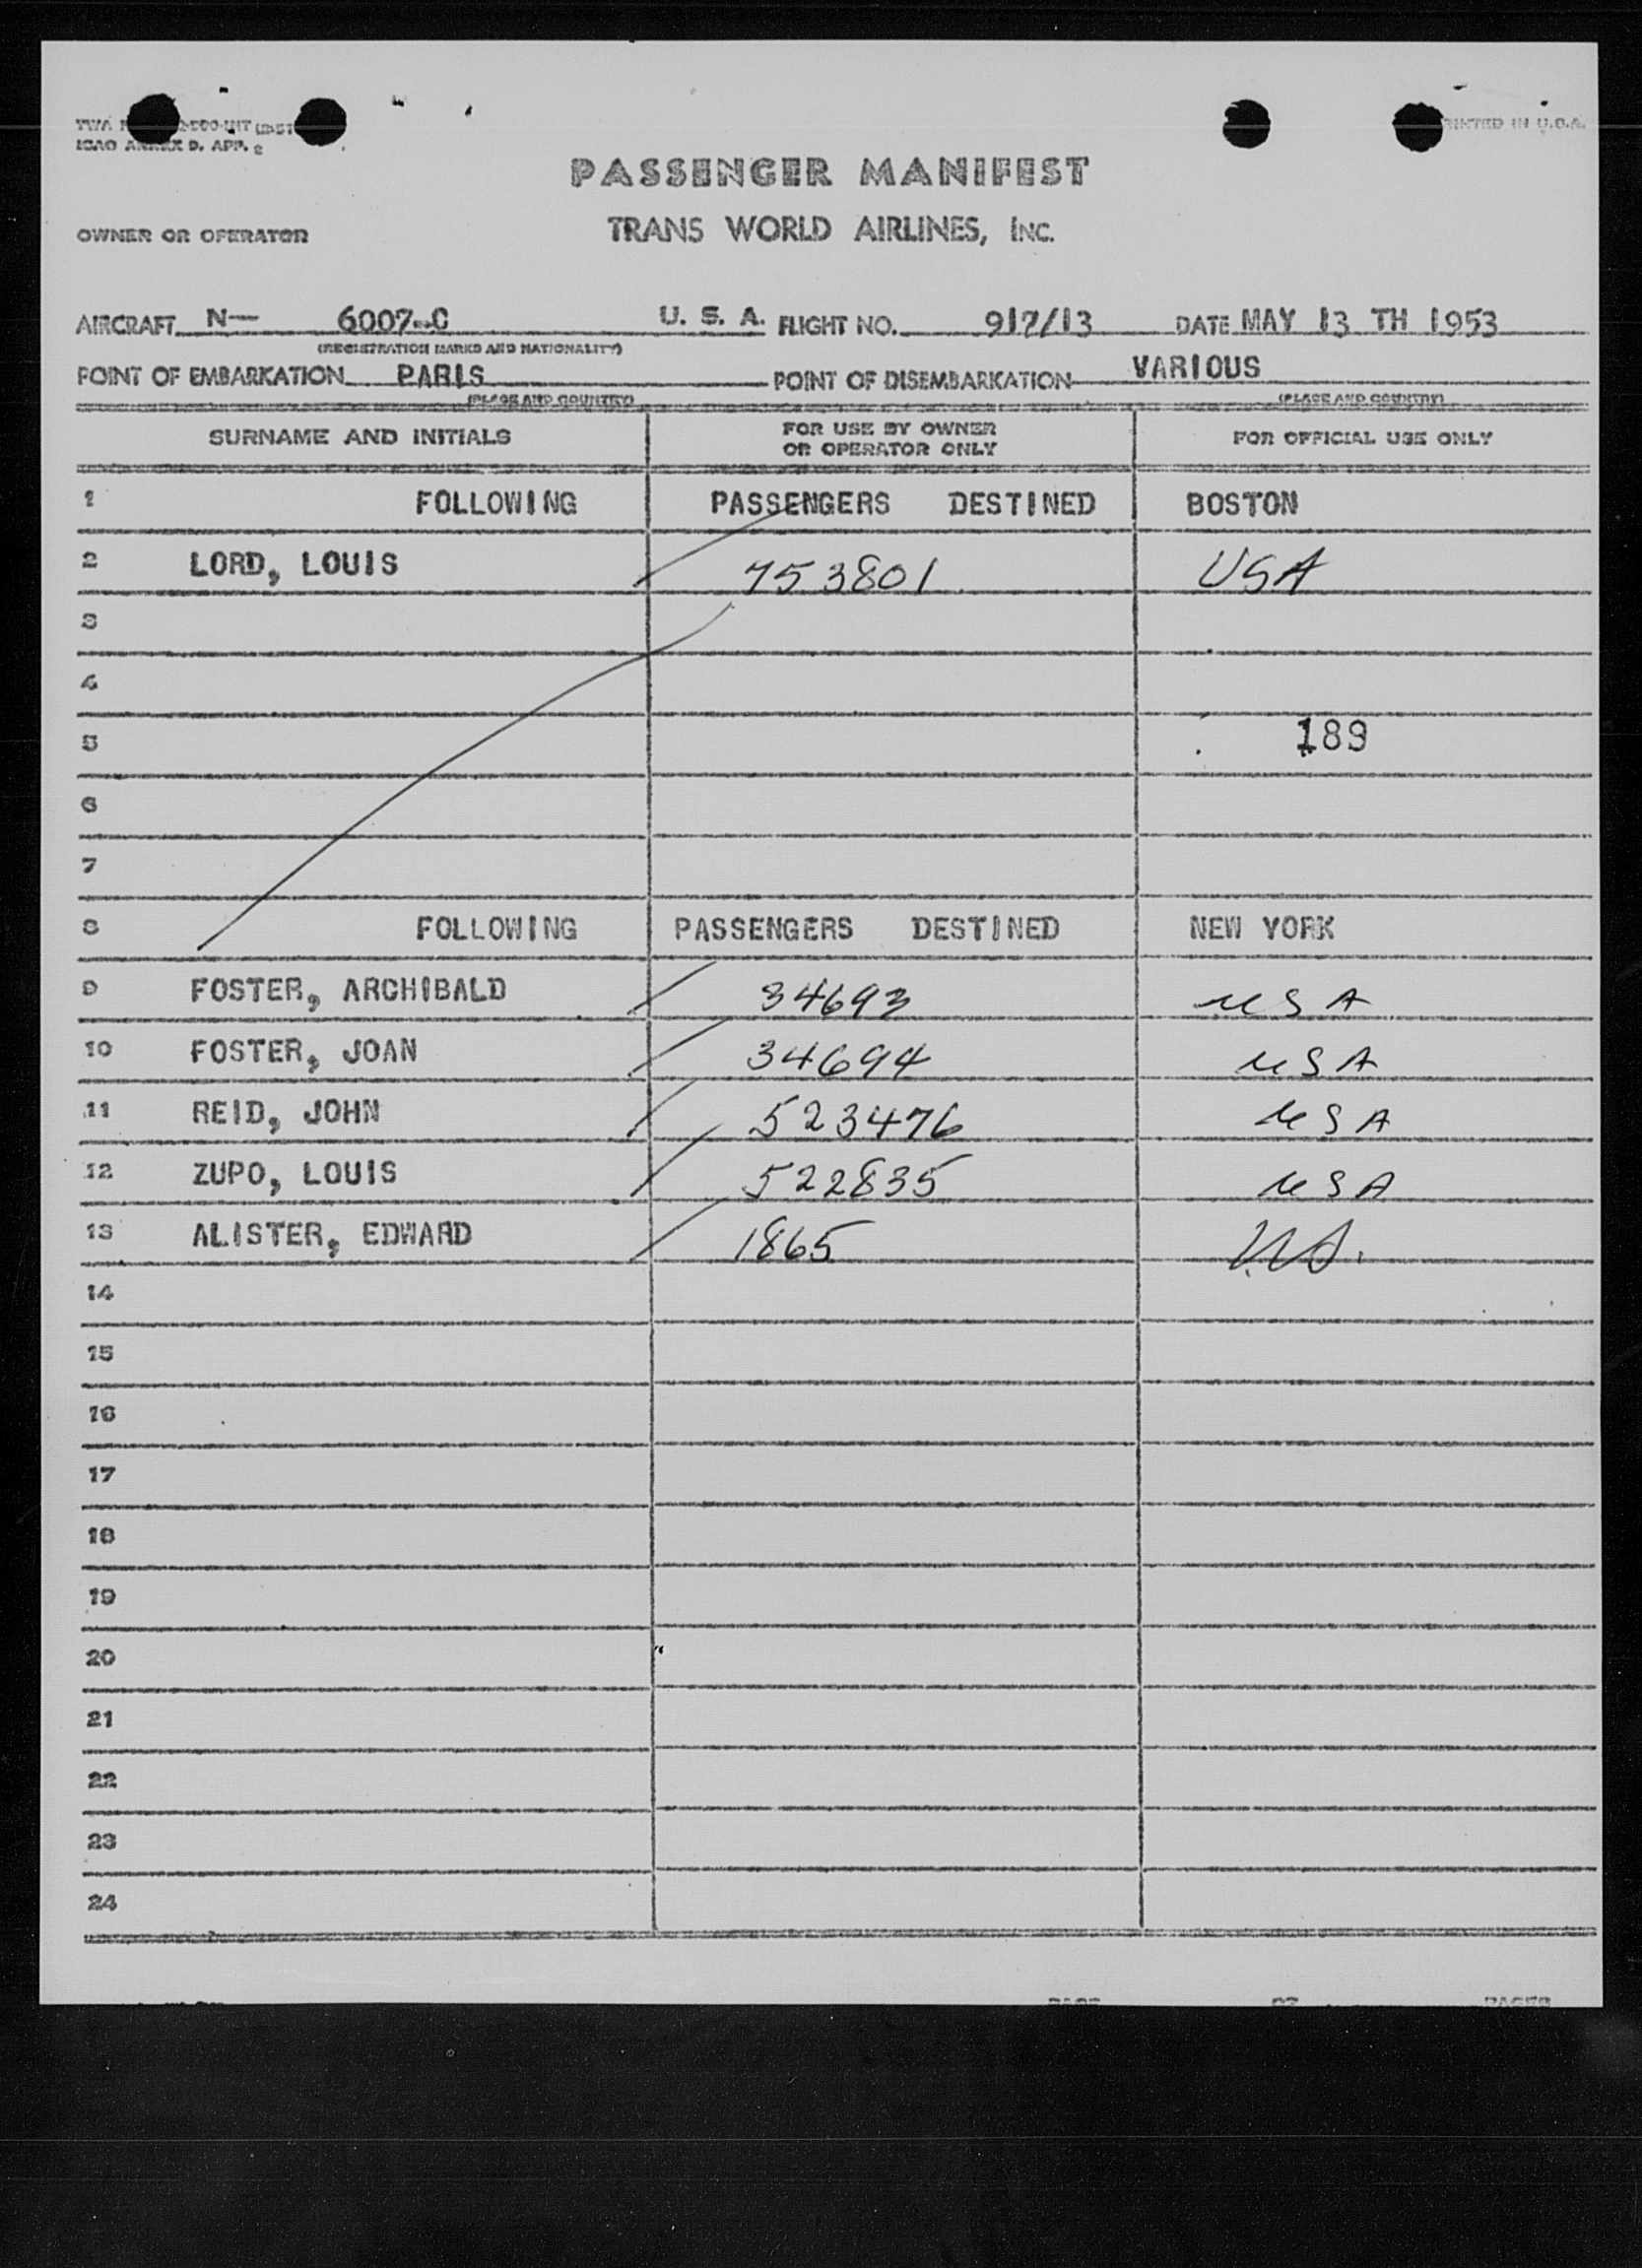 ICAO ANNEX 9. APP. 2
PRINTED IN U.S.A.
PASSENGER MANIFEST
OWNER OR OPERATOR TRANS WORLD AIRLINES, INC.
AIRCRAFT N— 6007-C U. S. A. FLIGHT NO. 917/13 DATE MAY 13 TH 1953
(REGISTRATION MARKS AND NATIONALITY)
POINT OF EMBARKATION PARIS POINT OF DISEMBARKATION VARIOUS
(PLACE AND COUNTRY) (PLACE AND COUNTRY)
SURNAME AND INITIALS FOR USE BY OWNER OR OPERATOR ONLY FOR OFFICIAL USE ONLY
1 FOLLOWING PASSENGERS DESTINED BOSTON
2 LORD, LOUIS 753801 USA
3
4
5 189
6
7
8 FOLLOWING PASSENGERS DESTINED NEW YORK
9 FOSTER, ARCHIBALD 34693 USA
10 FOSTER, JOAN 34694 USA
11 REID, JOHN 523476 USA
12 ZUPO, LOUIS 522835 USA
13 ALISTER, EDWARD 1865
14
15
16
17
18
19
20
21
22
23
24